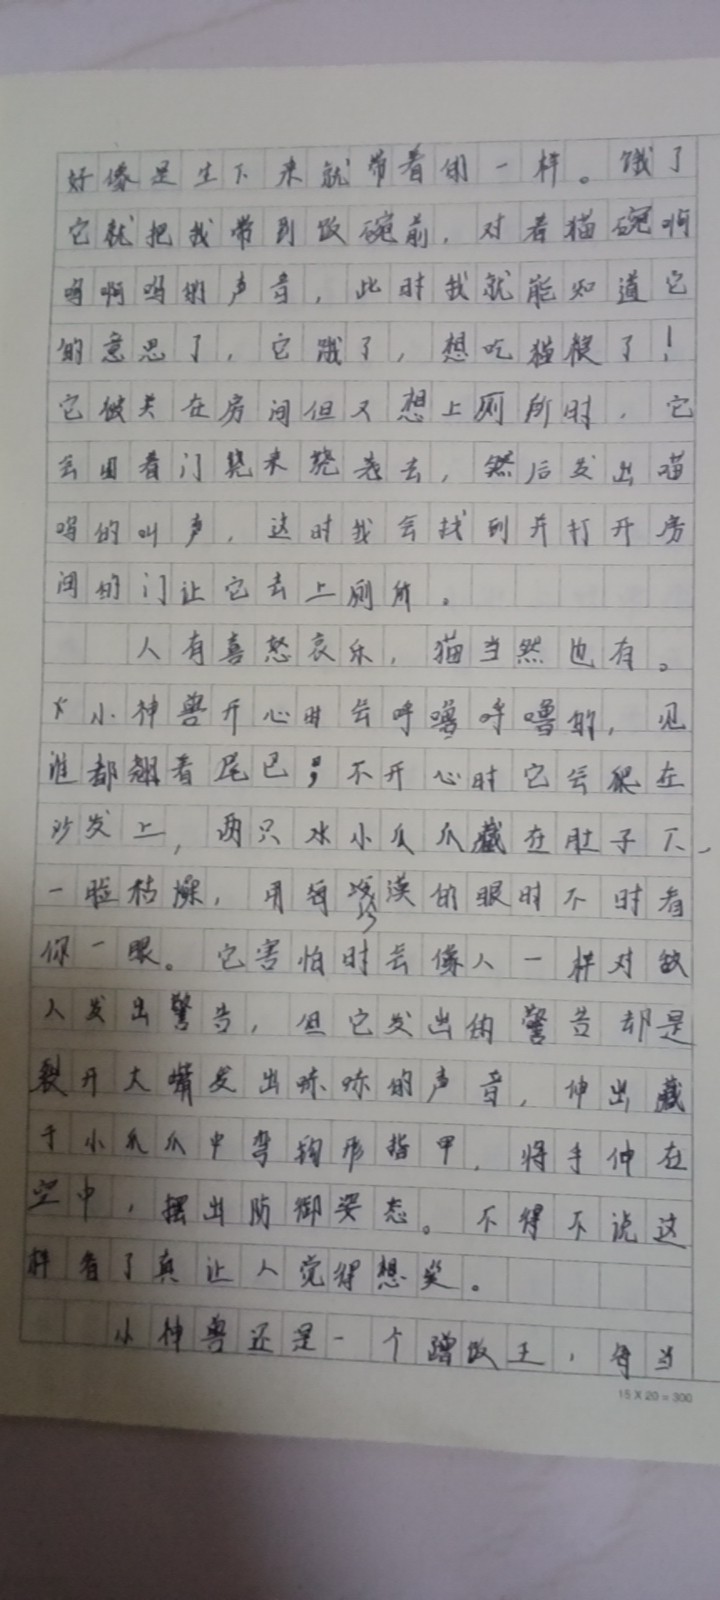 好像是生下来就带着的一样。饿了
它就把我带到饭碗前，对着猫碗啊
呜啊呜的声音，此时我就能知道它
的意思了，它饿了，想吃猫粮了！
它被关在房间但又想上厕所时，它
会围着门绕来绕去，然后发出喵
呜的叫声，这时我会找到并打开房
间的门让它去上厕所。
人有喜怒哀乐，猫当然也有。
小神兽开心时会呼噜呼噜的，见
谁都翘着尾巴；不开心时它会爬在
沙发上，两只小爪爪藏在肚子下，
一脸枯燥，用每漠的眼时不时看
你一眼。它害怕时会像人一样对敌
人发出警告，但它发出的警告却是
裂开大嘴发出哧哧的声音，伸出藏
于小爪爪中弯钩形指甲，将手伸在
空中，摆出防御姿态。不得不说这
样看了真让人觉得想笑。
小神兽还是一个蹭饭王，每当
15 X 20 = 300